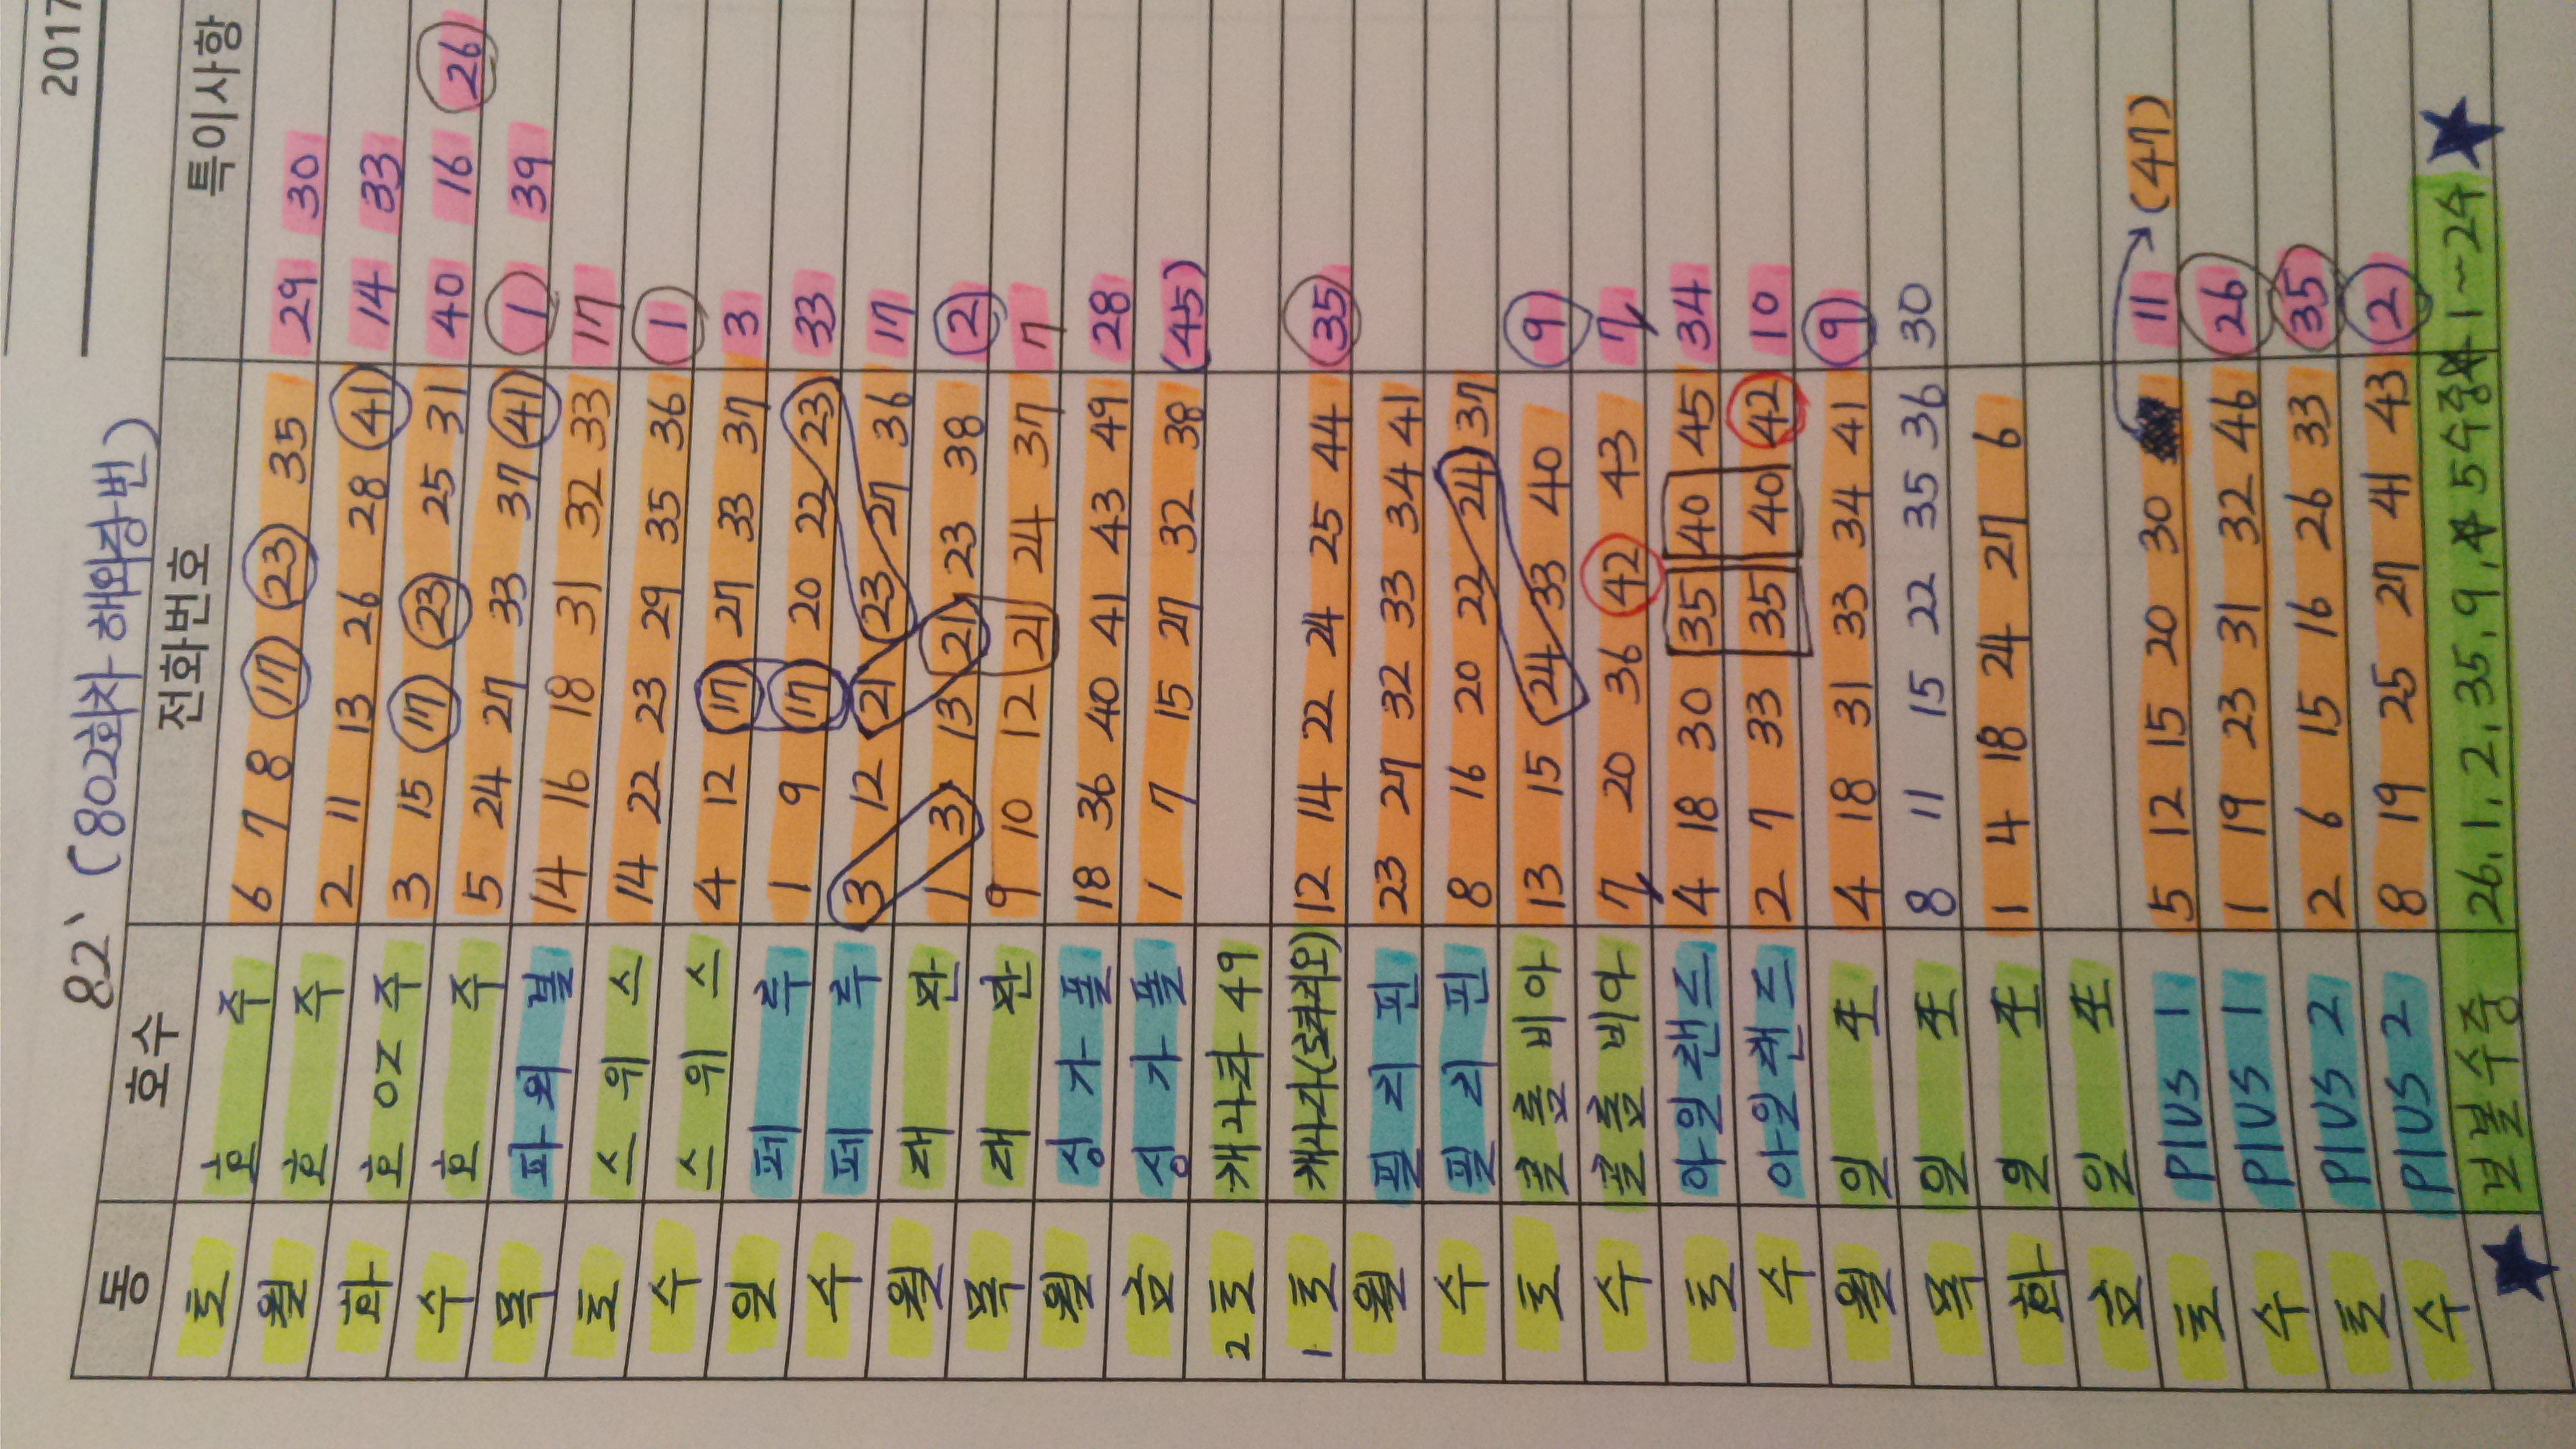 2017
82` (802회차 해외징번)
동 호수 전화번호 특이사항
토 호 주 6 7 8 17 23 35 29 30
월 호 주 2 11 13 26 28 41 14 33
화 호 OZ 주 3 15 17 23 25 31 40 16 26
수 호 주 5 24 27 33 37 41 1 39
목 파 워 볼 14 16 18 31 32 33 17
토 스 위 스 14 22 23 29 35 36 1
수 스 위 스 4 12 17 27 33 37 3
일 페 루 1 9 17 20 22 23 33
수 페 루 3 12 21 23 27 36 17
월 재 판 1 3 13 21 23 38 2
목 재 판 9 10 12 21 24 37 7
월 싱 가 폴 18 36 40 41 43 49 28
금 싱 가 폴 1 7 15 27 32 38 (45)
2 토 캐나다 49
1 토 캐나다(퀘백) 12 14 22 24 25 44 35
월 필 리 핀 23 27 32 33 34 41
수 필 리 핀 8 16 20 22 24 37
토 콜 롬 비 아 13 15 24 33 40 9
수 콜 롬 비 아 7 20 36 42 43 7
토 아 일 랜 드 4 18 30 35 40 45 34
수 아 일 랜 드 2 7 33 35 40 42 10
월 일 本 4 18 31 33 34 41 9
목 일 本 8 11 15 22 35 36 30
화 일 本 1 4 18 24 27 6
금 일 本
토 PlUS 1 5 12 15 20 30 11 (47)
수 PlUS 1 1 19 23 31 32 46 26
토 PlUS 2 2 6 15 16 26 33 35
수 PlUS 2 8 19 25 27 41 43 2
보볼수중 26. 1. 2. 35. 9. 5수중 1~2수